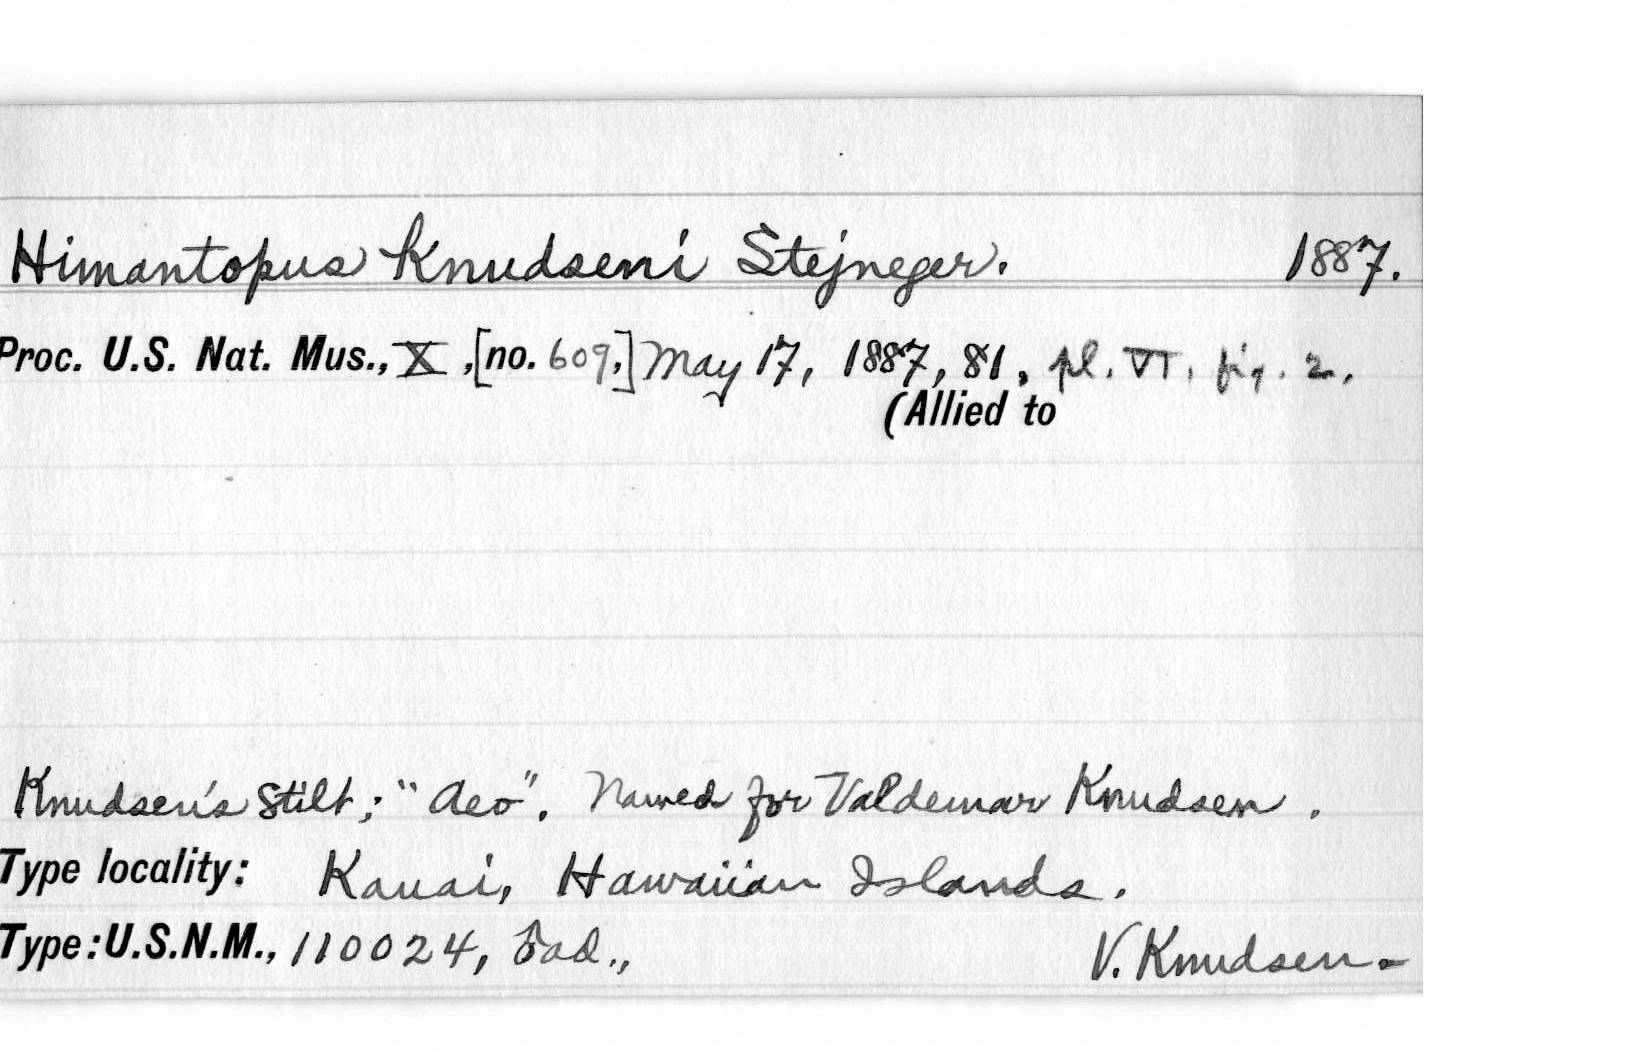 Himantopus Knudseni Stejneger. 1887.
Proc. U.S. Nat. Mus., X, [no. 609,] May 17, 1887, 81, pl. VI, fig. 2.
(Allied to
Knudsen's Stilt; "Aeo". Named for Valdemar Knudsen.
Type locality: Kauai, Hawaiian Islands.
Type: U.S.N.M., 110024, ♂ ad., V. Knudsen.